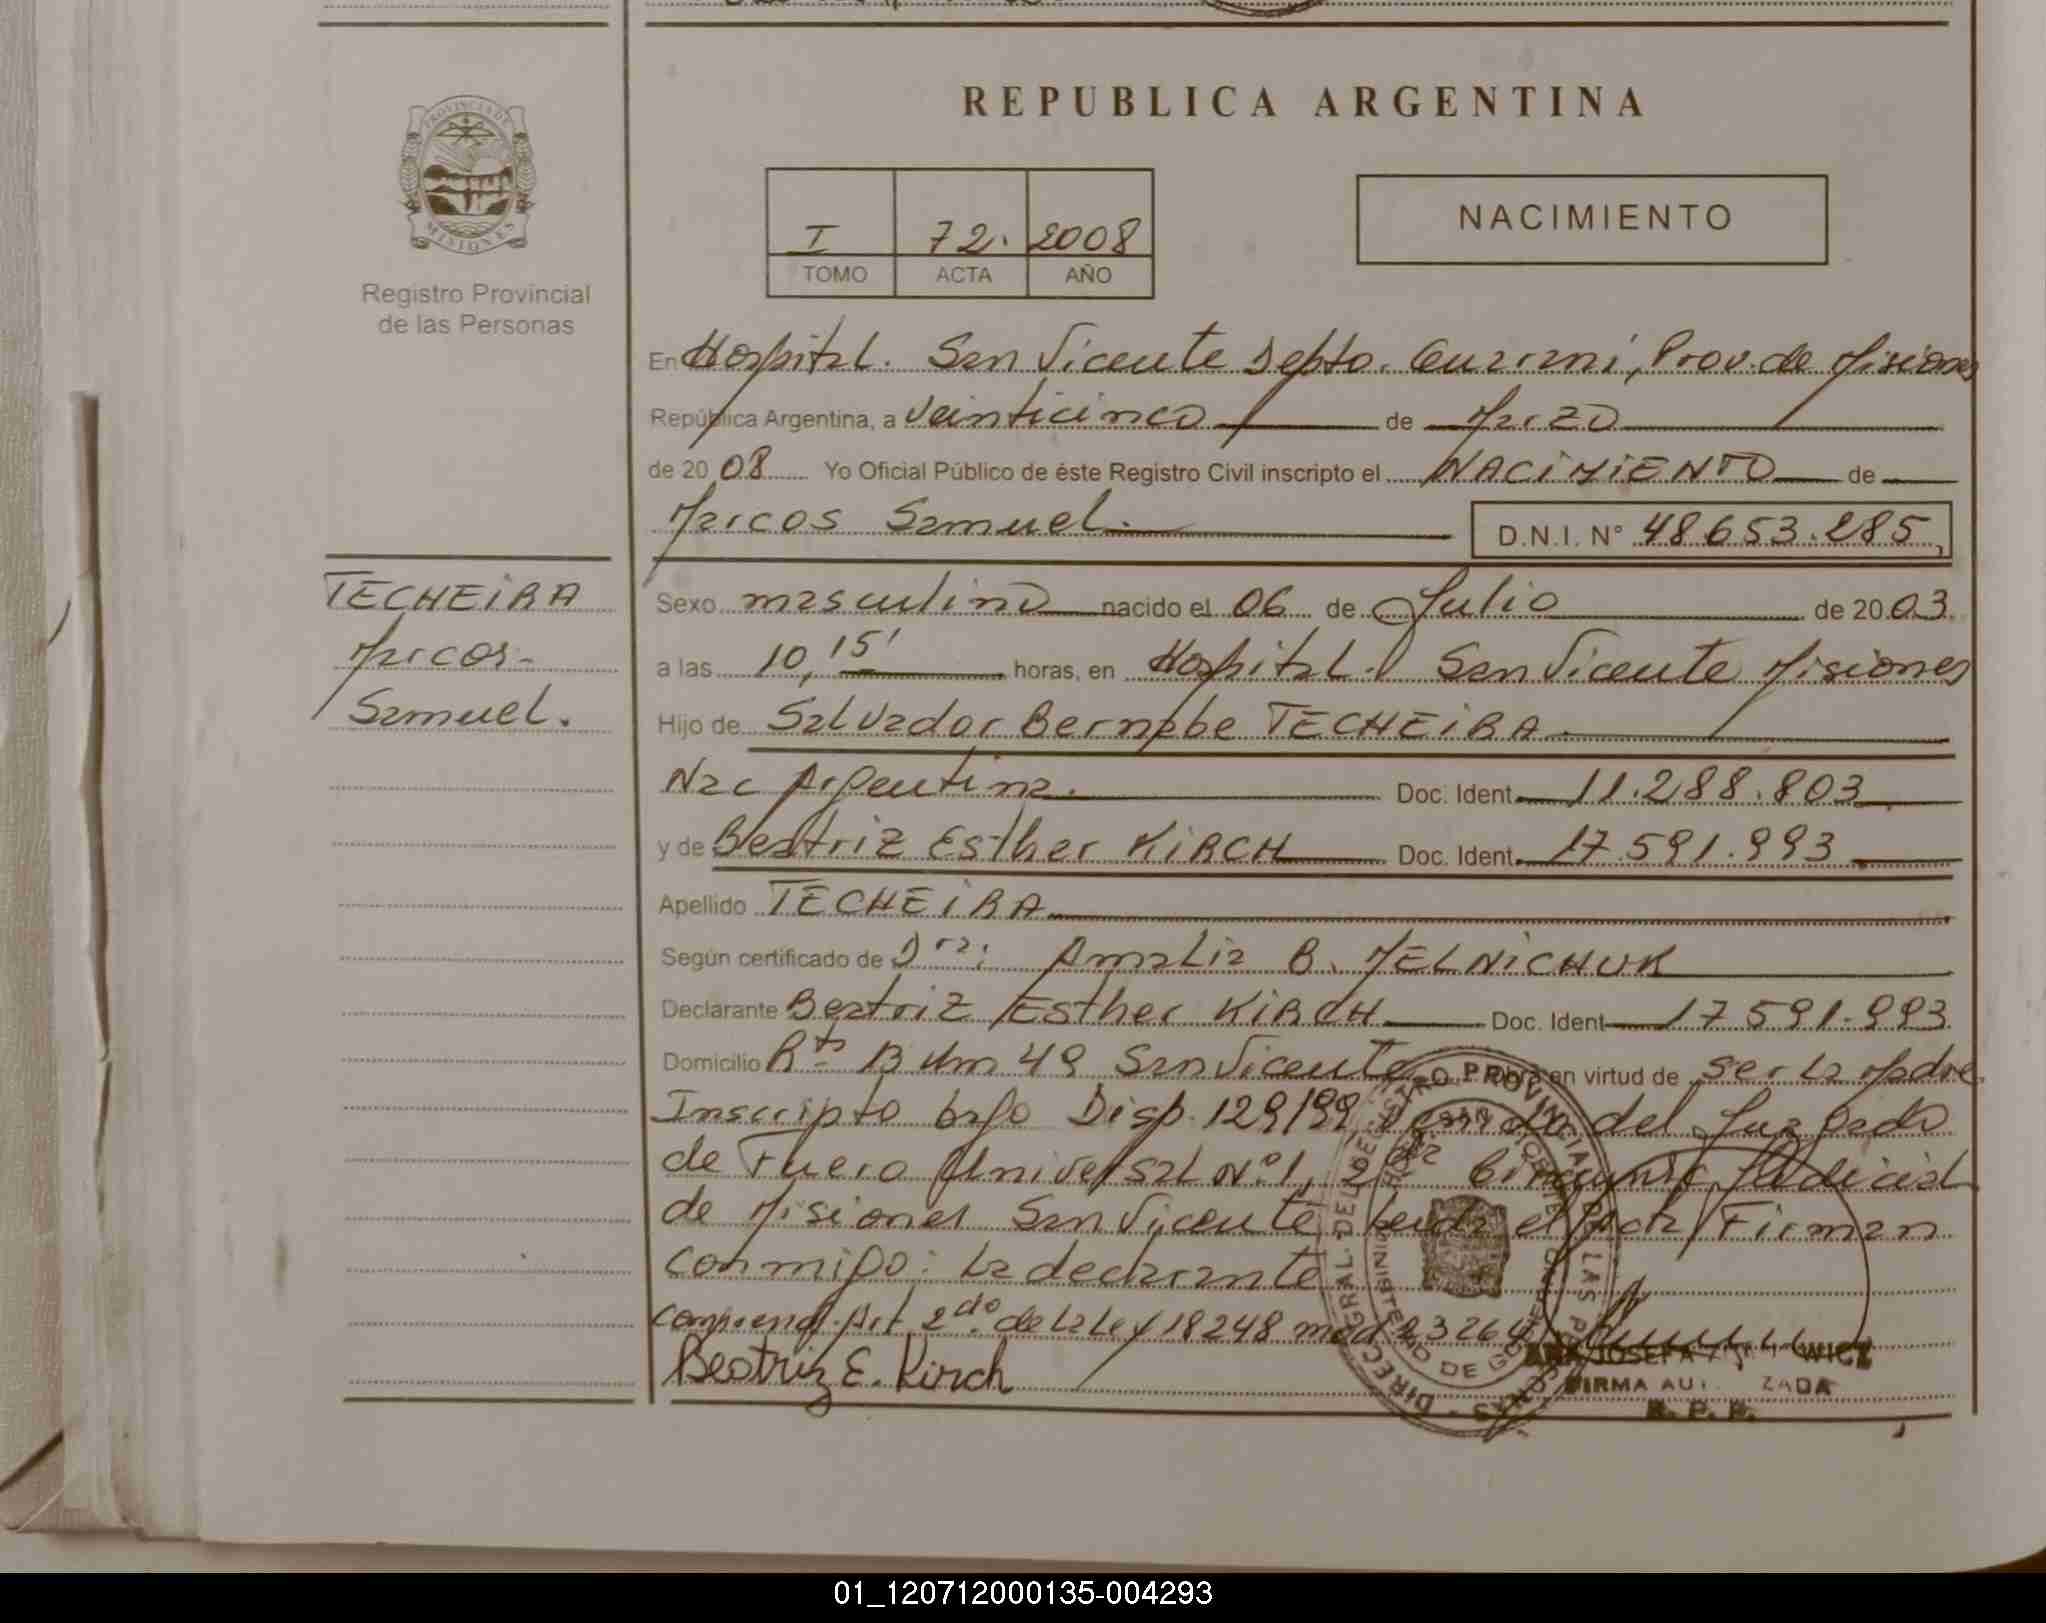 REPUBLICA ARGENTINA
PROVINCIA DE MISIONES
Registro Provincial
de las Personas
I 72. 2008
TOMO ACTA AÑO
NACIMIENTO
En Hospital. San Vicente Depto. Guarani, Prov. de Misiones
República Argentina, a veinticinco de Marzo
de 2008 Yo Oficial Público de éste Registro Civil inscripto el NACIMIENTO de
Marcos Samuel. D.N.I. N° 48.653.285,
TECHEIRA
Marcos-
Samuel.
Sexo masculino nacido el 06 de Julio de 2003
a las 10,15' horas, en Hospital. San Vicente Misiones
Hijo de Salvador Bernabe TECHEIRA
Nac Argentina. Doc. Ident. 11.288.803
y de Beatriz Esther KIRCH Doc. Ident. 17.591.993
Apellido TECHEIRA
Según certificado de Dra: Amalia B. MELNICHUK
Declarante Beatriz Esther KIRCH Doc. Ident 17.591.993
Domicilio Rta 13 Km 49 San Vicente en virtud de ser la Madre
Inscripto bajo Disp. 129/99 del Juzgado
de Fuero Universal N°1, 2da Judicial
de Misiones San Vicente Leida el Acta Firman
conmigo: La declarante
Art 2do. de la Ley 18248 mod 23264
Beatriz E. Kirch
JOSEFA WICZ
FIRMA AUT ZADA
R. P. P.
01_120712000135-004293